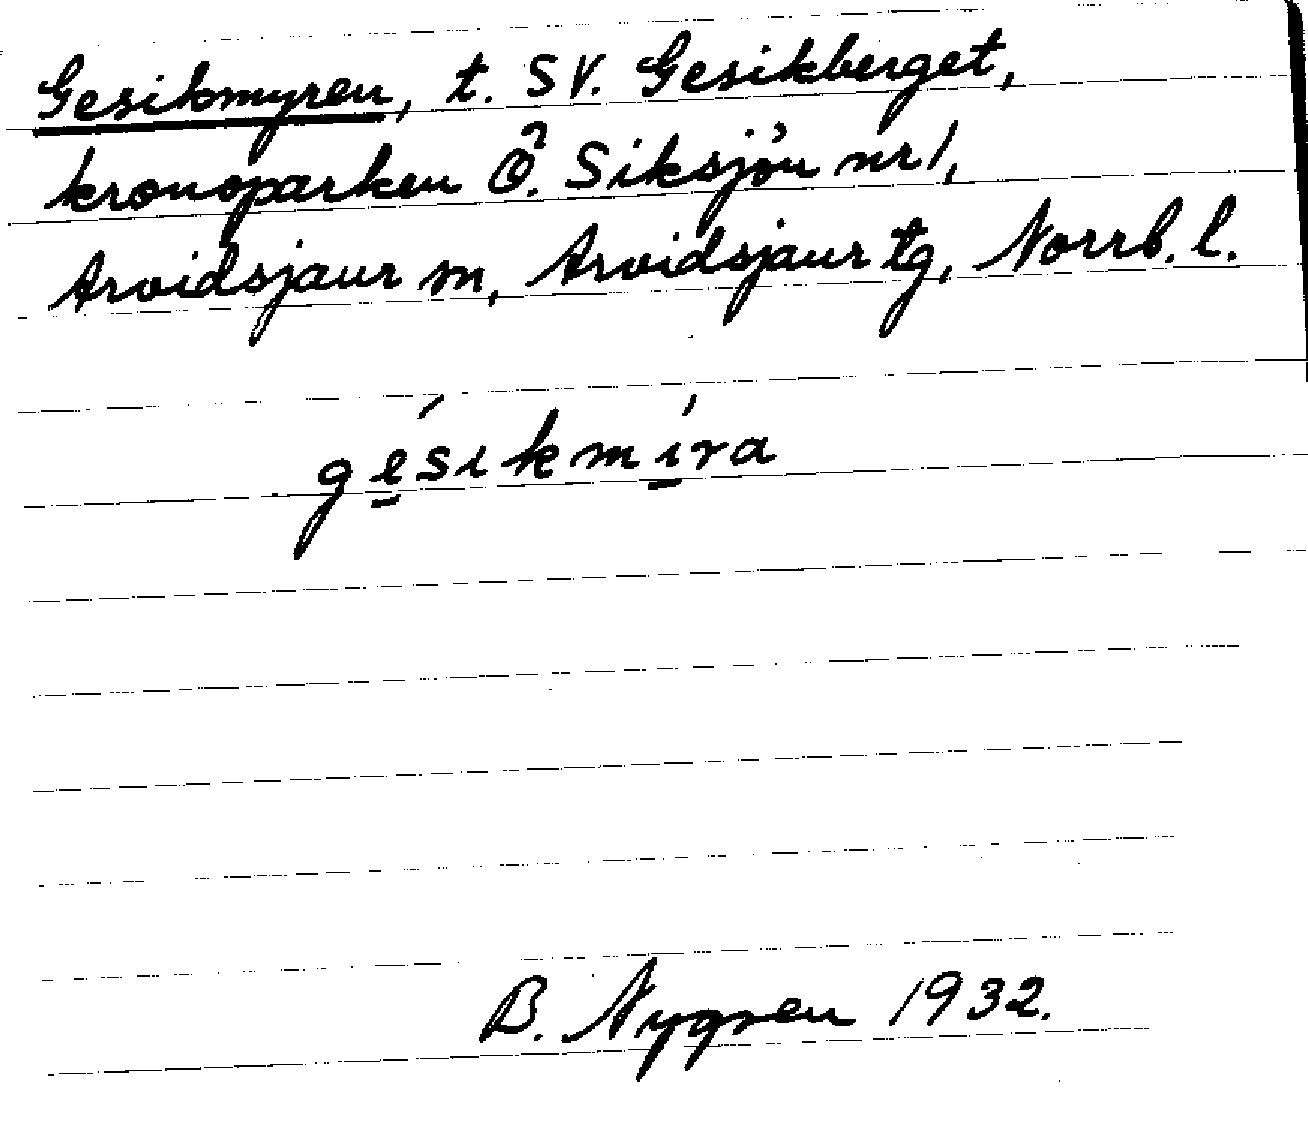 Gesikmyren, t. SV. Gesikberget,
kronoparken Ö. Siksjön nr 1,
Arvidsjaur sn, Arvidsjaur tg, Norrb. l.
gésikmíra
B. Nygren 1932.